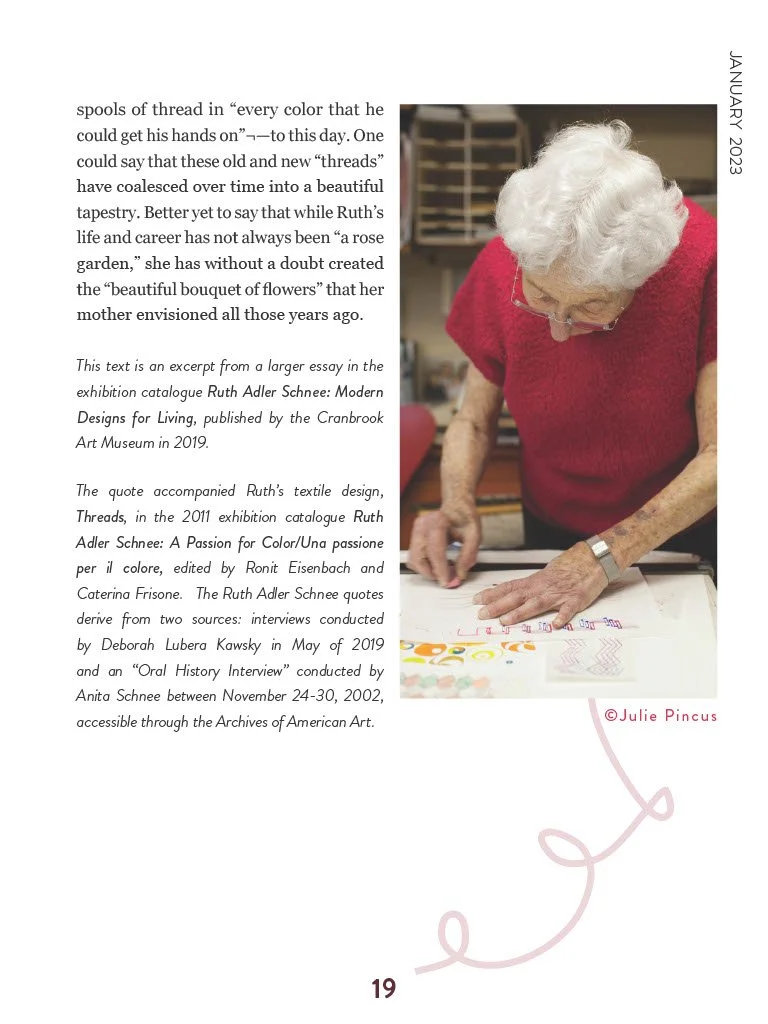 JANUARY 2023
spools of thread in “every color that he
could get his hands on”¬—to this day. One
could say that these old and new “threads”
have coalesced over time into a beautiful
tapestry. Better yet to say that while Ruth’s
life and career has not always been “a rose
garden,” she has without a doubt created
the “beautiful bouquet of flowers” that her
mother envisioned all those years ago.
This text is an excerpt from a larger essay in the
exhibition catalogue Ruth Adler Schnee: Modern
Designs for Living, published by the Cranbrook
Art Museum in 2019.
The quote accompanied Ruth’s textile design,
Threads, in the 2011 exhibition catalogue Ruth
Adler Schnee: A Passion for Color/Una passione
per il colore, edited by Ronit Eisenbach and
Caterina Frisone. The Ruth Adler Schnee quotes
derive from two sources: interviews conducted
by Deborah Lubera Kawsky in May of 2019
and an “Oral History Interview” conducted by
Anita Schnee between November 24-30, 2002,
accessible through the Archives of American Art.
©Julie Pincus
19